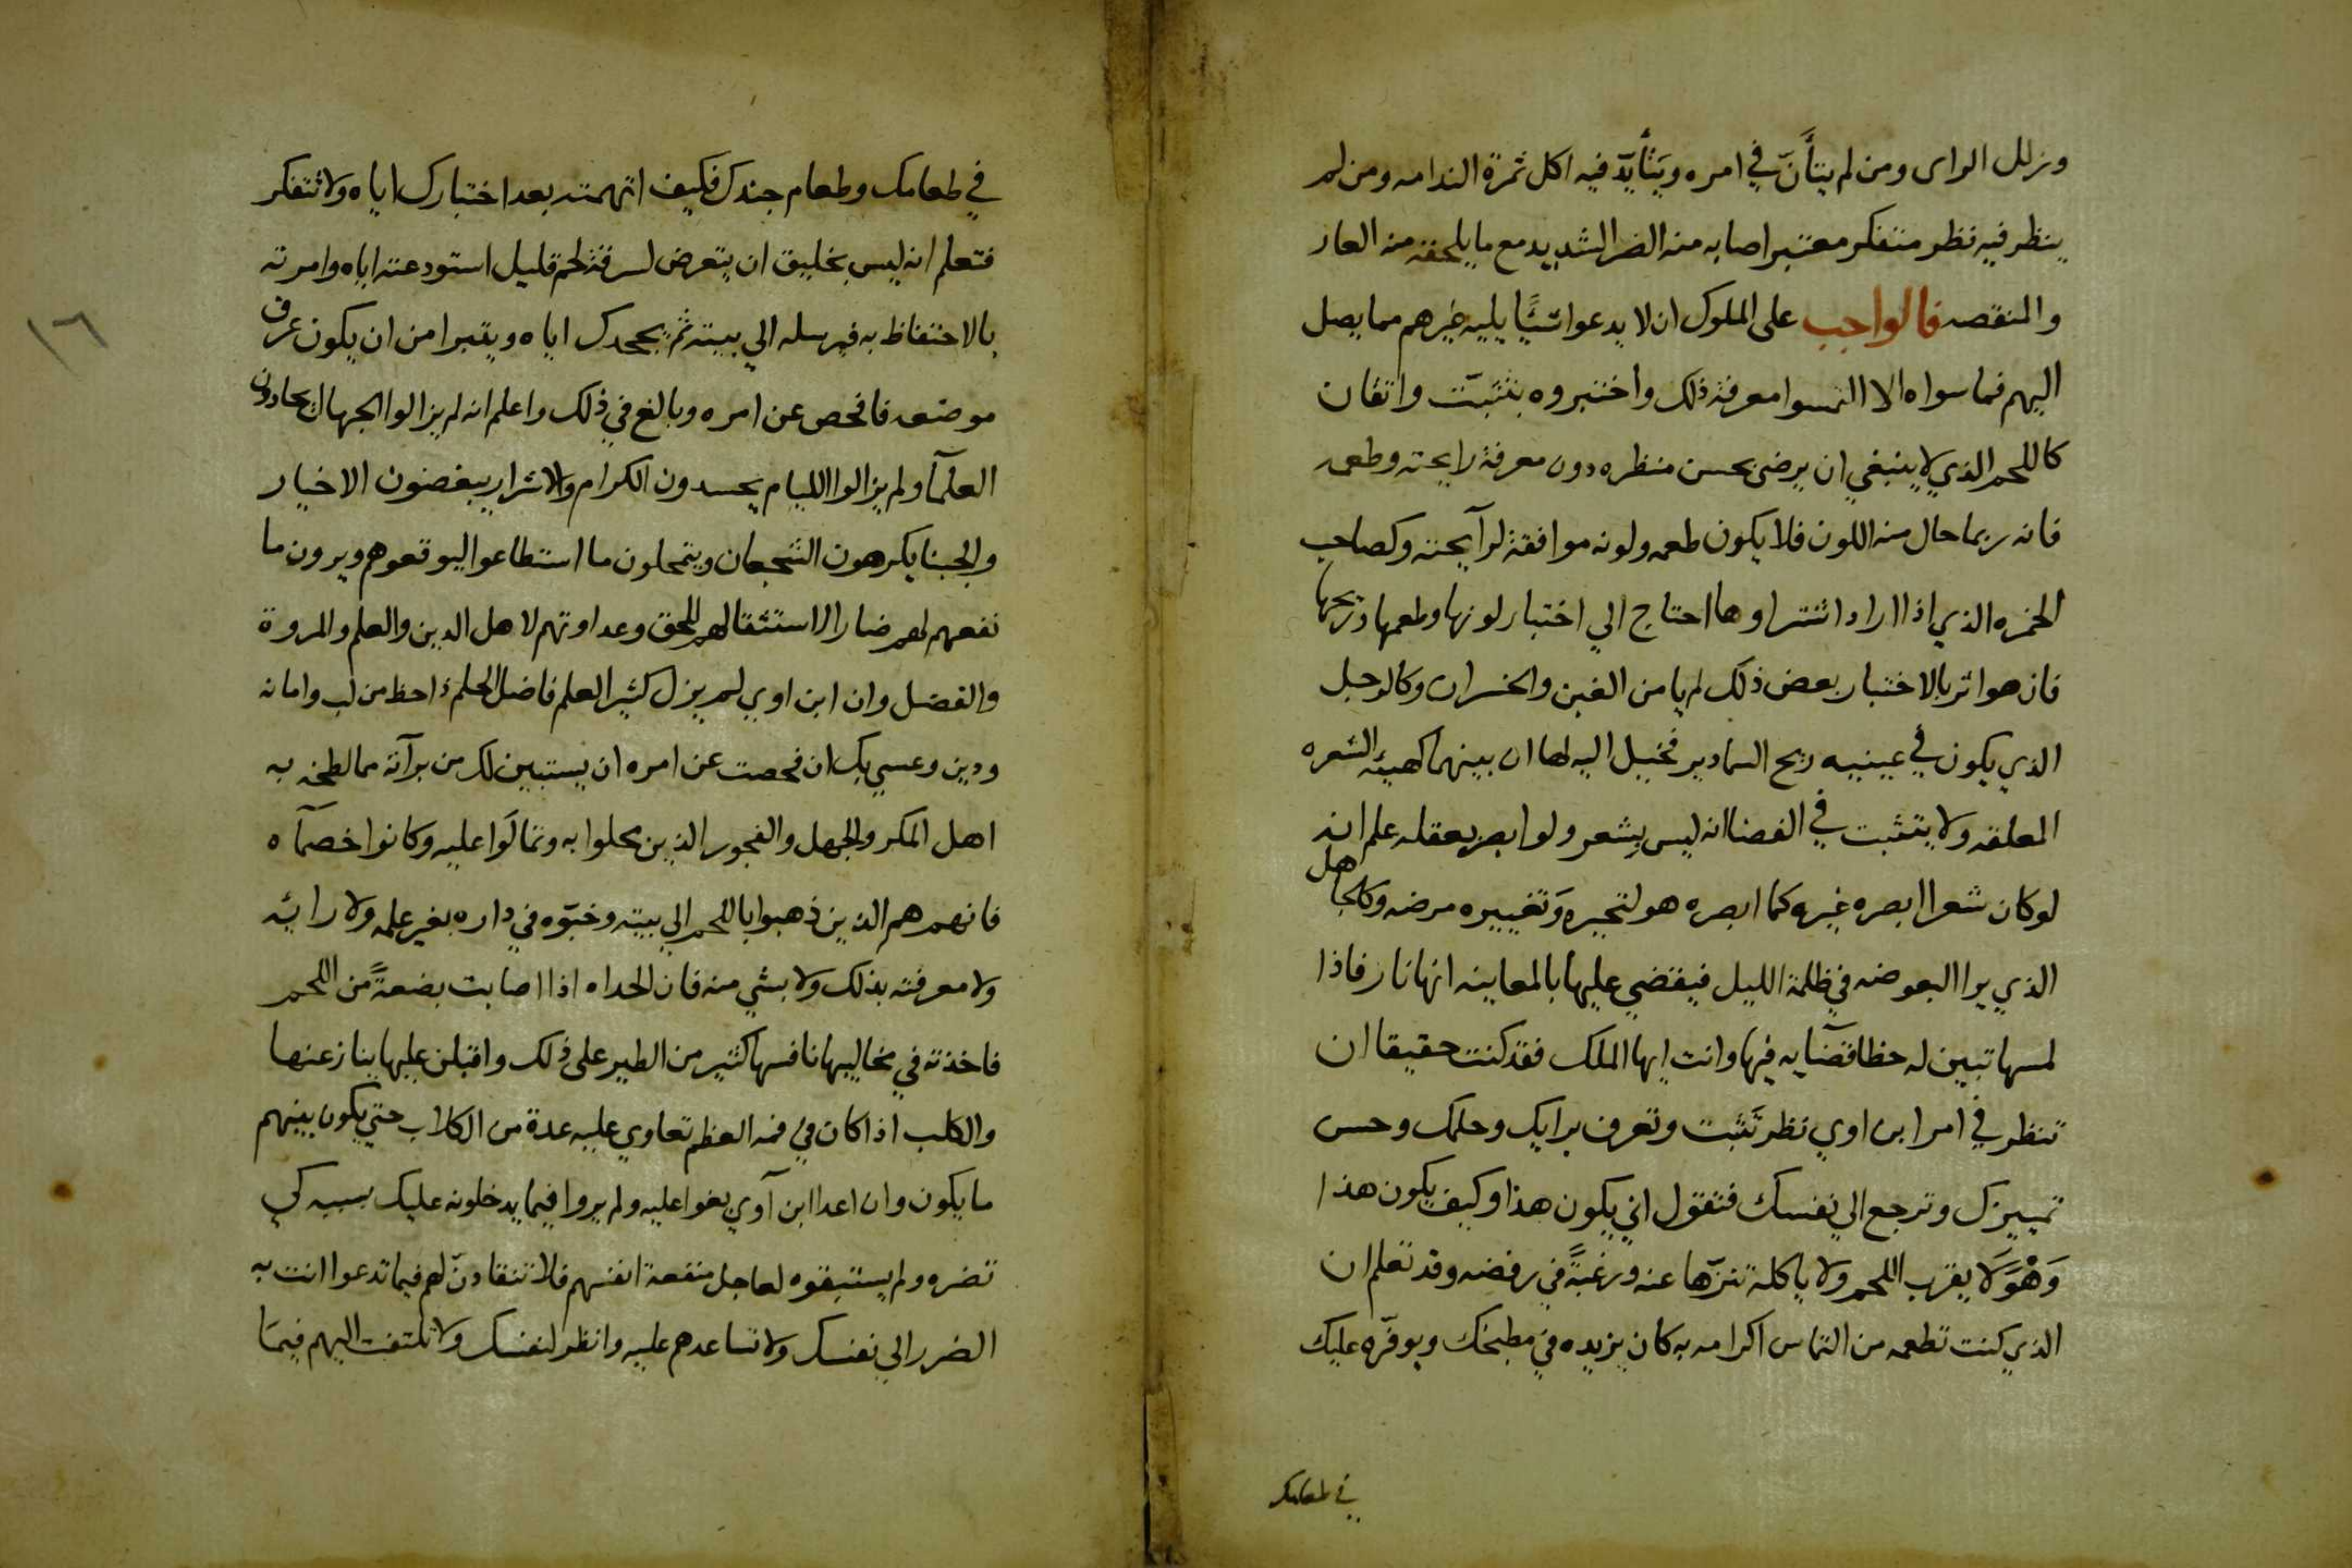 وزلل الراى ومن لم يتأنّ في امره ويَتأيدّ فيه اكل ثمرة الندامه ومن لم
ينظر فيه نظر متفكر معتبر اصابه منه الضر الشديد مع ما يلحقه منه العار
والمنقصه فالواجب على الملوك ان لا يدعوا شئًيا يليه غيرهم مما يصل
اليهم فما سواه الا التمسوا معرفة ذلك واختبروه بتثبّت واتقان
كاللحم الذي لا ينبغي ان يرضى بحسن منظره دون معرفة رايحته وطعمه
فانه ربما حال منه اللون فلا يكون طعمه ولونه موافقة لرآيحته وكصاحب
الخمره الذي اذا اراد اشتراوها احتاج الي اختبار لونها وطعمها وريحها
فان هو اثر بالاختبار بعض ذلك لم يامن الغبن والخسران وكالرجل
الذي يكون في عينيه ريح السمادير فخيل اليه لها ان بينهما كهيئة الشعره
المعلقه ولا يتثبت في القضا انه ليس بشعر ولو ابصر بعقله علم انه
لو كان شعرا ابصره غيره كما ابصره هو لتحيره وَتغييره مرضه وكالجاهل
الذي يرا البعوضه في ظلمة الليل فيقضي عليها بالمعاينه انها نار فاذا
لمسها تبين له خطا قضآيه فيها وانت ايها الملك فقد كنت حقيقا ان
تنظر في امر ابن اوي نظر تَثبت وتعرف برايك وحلمك وحسن
تمييزك وترجع الي نفسك فتقول اني يكون هذا وكيف يكون هذا
وَهْوَ لا يقرب اللحم ولا ياكله تنزّها عنه ورغبةً في رفضه وقد تعلم ان
الذي كنت تطعمه من التماس اكرامه به كان يزيده في مطبخك ويوفّره عليك
في طعامك
١٦
في طعامك وطعام جندك فكيف اتهمته بعد اختبارك اياه ولا تتفكر
فتعلم انه ليس بخليق ان يتعرض لسرقة لحم قليل استودعته اياه وامرته
بالاحتفاظ به فيرسله الي بيته ثم يجحدك اياه ويتبرا من ان يكون عرف
موضعه فافحص عن امره وبالغ في ذلك واعلم انه لم يزالوا الجهال يحادون
العلمآ ولم يزالوا الليام يحسدون الكرام والاشرار يبغضون الاخيار
والجبنا يكرهون الشجعان ويتمحلون ما استطاعوا ليوقعوهم ويرون ما
نفعهم لهم ضارا لاستثقالهم للحق وعداوتهم لاهل الدين والعلم والمروة
والفضل وان ابن اوي لم يزل كثير العلم فاضل الحلم ذا حظ من لب وامانه
ودين وعسي بك ان فحصت عن امره ان يستبين لك من برآته مما لطخه به
اهل المكر والجهل والفجور الذين محلوا به وتمالَوا عليه وكانوا خصمآه
فانهم هم الذين ذهبوا باللحم الي بيته وخبّوه في داره بغير علمه ولا رائيه
ولا معرفته بذلك ولا بشي منه فان الحداه اذا اصابت بضعةً من اللحم
فاخذته في مخاليبها نافسها كثير من الطير على ذلك واقبلن عليها ينازعنها
والكلب اذا كان في فمه العظم تعاوي عليه عدة من الكلاب حتي يكون بينهم
ما يكون وان اعدا ابن آوي بغوا عليه ولم يروا فيما يدخلونه عليك بسببه كي
تضره ولم يستبقوه لعاجل منفعة انفسهم فلا تنقادنّ لهم فيما تدعوا انت به
الضرر الي نفسك ولا تساعدهم عليه وانظر لنفسك ولا تلتفت اليهم فيما